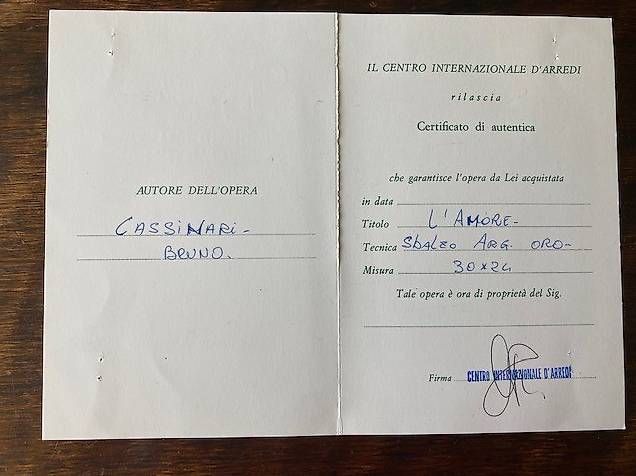 AUTORE DELL'OPERA
CASSINARI-
BRUNO.
IL CENTRO INTERNAZIONALE D'ARREDI
rilascia
Certificato di autentica
che garantisce l'opera da Lei acquistata
in data
Titolo L'AMORE-
Tecnica SBALZO ARG. ORO-
Misura 30x24
Tale opera è ora di proprietà del Sig.
Firma CENTRO INTERNAZIONALE D'ARREDI